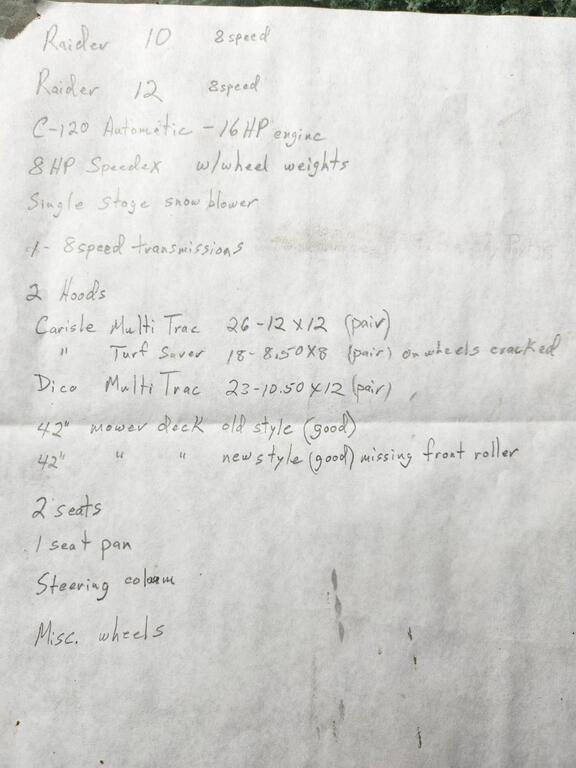 Raider 10 8 speed
Raider 12 8speed
C-120 Automatic - 16 HP engine
8 HP Speedex w/wheel weights
Single stage snow blower
1- 8 speed transmissions
2 Hoods
Carisle Multi Trac 26-12 x 12 (pair)
" Turf Saver 18-8.50x8 (pair) on wheels cracked
Dico Multi Trac 23-10.50 x 12 (pair)
42" mower deck old style (good)
42" " " new style (good) missing front roller
2 seats
1 seat pan
Steering
Misc. wheels